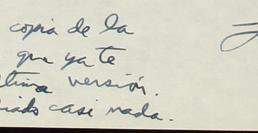 copia de la
que ya te
tima versión.
iado casi nada.